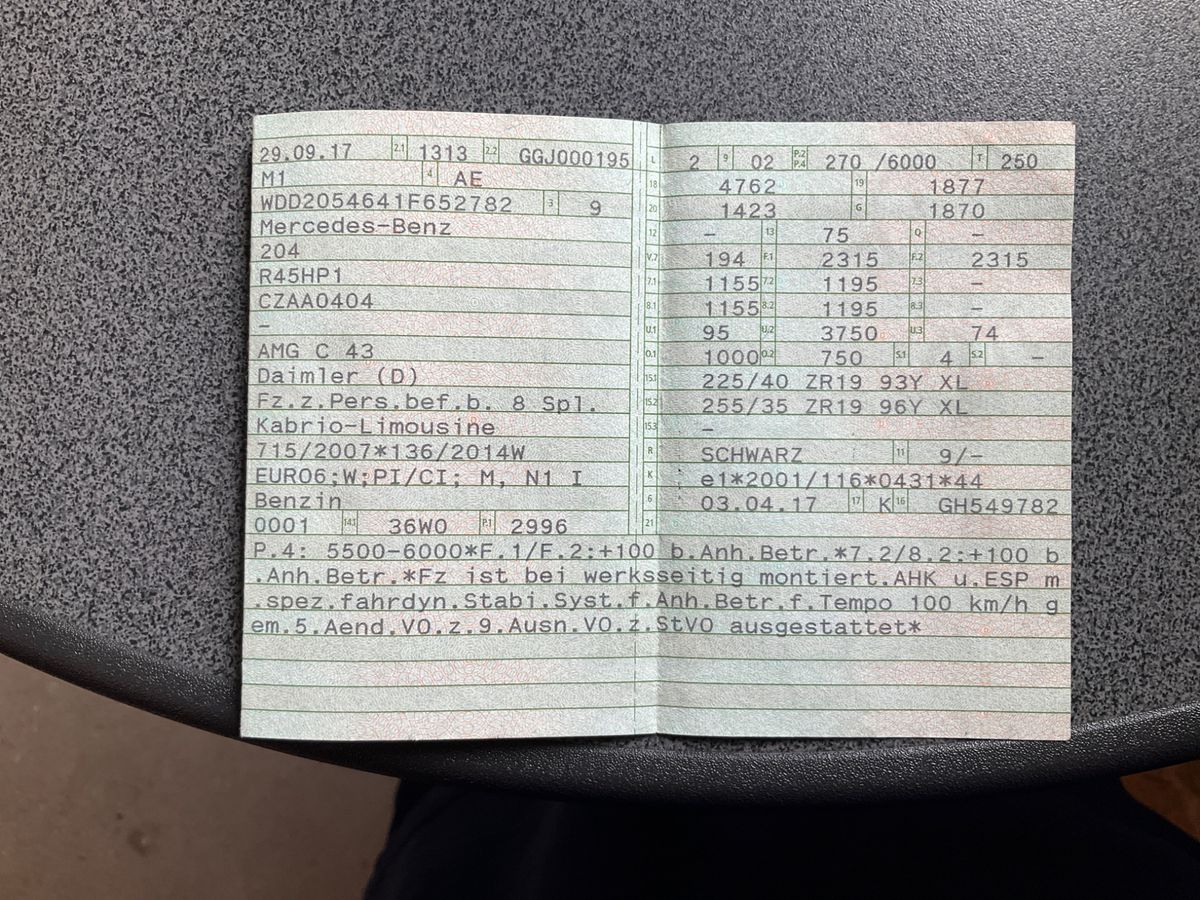 29.09.17 2.1 1313 2.2 GGJ000195 L 2 9 02 P.2 P.4 270 /6000 T 250
M1 4 AE 18 4762 19 1877
WDD2054641F652782 3 9 20 1423 G 1870
Mercedes-Benz 12 – 13 75 Q –
204 V.7 194 F.1 2315 F.2 2315
R45HP1 7.1 1155 7.2 1195 7.3 –
CZAA0404 8.1 1155 8.2 1195 8.3 –
– U.1 95 U.2 3750 U.3 74
AMG C 43 O.1 1000 O.2 750 S.1 4 S.2 –
Daimler (D) 15.1 225/40 ZR19 93Y XL
Fz.z.Pers.bef.b. 8 Spl. 15.2 255/35 ZR19 96Y XL
Kabrio-Limousine 15.3 –
715/2007*136/2014W R SCHWARZ 11 9/–
EURO6;W;PI/CI; M, N1 I K e1*2001/116*0431*44
Benzin 6 03.04.17 17 K 16 GH549782
0001 14.1 36W0 P.1 2996 21
P.4: 5500-6000*F.1/F.2:+100 b.Anh.Betr.*7.2/8.2:+100 b
.Anh.Betr.*Fz ist bei werksseitig montiert.AHK u.ESP m
.spez.fahrdyn.Stabi.Syst.f.Anh.Betr.f.Tempo 100 km/h g
em.5.Aend.VO.z.9.Ausn.VO.z.StVO ausgestattet*